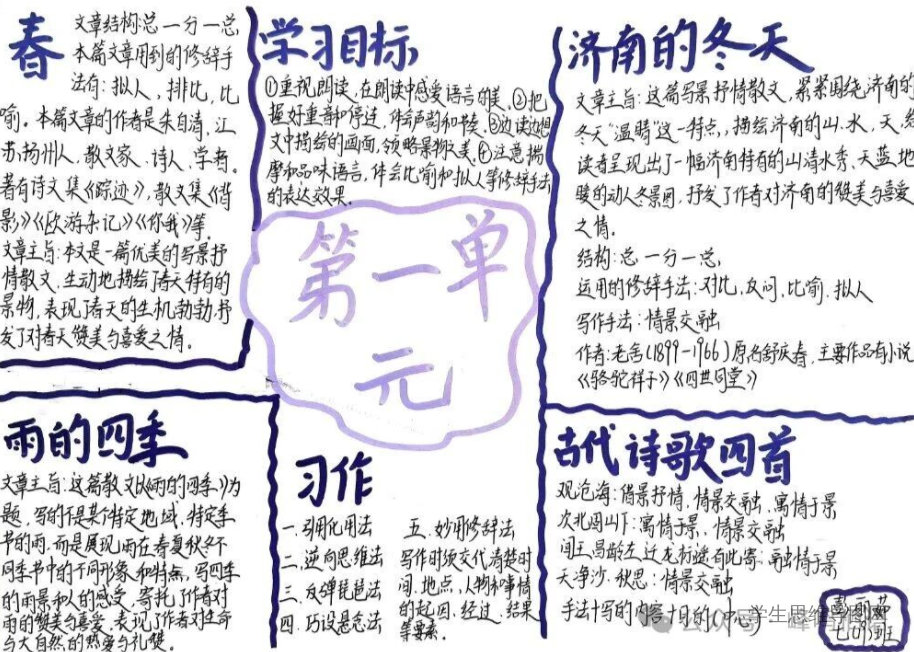 春
文章结构:总一分一总,
本篇文章用到的修辞手
法有:拟人,排比,比
喻。本篇文章的作者是朱自清,江
苏扬州人,散文家、诗人、学者。
著有诗文集《踪迹》,散文集《背
影》《欧游杂记》《你我》等。
文章主旨:本文是一篇优美的写景抒
情散文,生动地描绘了春天特有的
景物,表现了春天的生机勃勃,抒
发了对春天赞美与喜爱之情。
学习目标
①重视朗读,在朗读中感受语言的美,②把
握好重音和停连,体会声韵和节奏。③边读边想
文中描绘的画面,领略景物之美。④注意揣
摩和品味语言,体会比喻和拟人等修辞手法
的表达效果。
第一单
元
济南的冬天
文章主旨:这篇写景抒情散文,紧紧围绕济南的
冬天"温晴"这一特点,描绘济南的山、水,天,给
读者呈现出了一幅济南特有的山清水秀、天蓝地
暖的动人冬景图,抒发了作者对济南的赞美与喜爱
之情。
结构:总一分一总,
运用的修辞手法:对比,反问,比喻,拟人
写作手法:情景交融
作者:老舍(1899-1966)原名舒庆春,主要作品有小说
《骆驼祥子》《四世同堂》
雨的四季
文章主旨:这篇散文以《雨的四季》为
题,写的不是某个特定地域、特定季
节的雨,而是展现雨在春夏秋冬不
同季节中的不同形象和特点,写四季
的雨景和人的感受,寄托了作者对
雨的赞美与喜爱,表现了作者对生命
与大自然的热爱与礼赞。
习作
一.引用化用法
二.逆向思维法
三.反弹琵琶法
四.巧设悬念法
五.妙用修辞法
写作时须交代清楚时
间、地点,人物和事情
的起因,经过,结果
等要素。
古代诗歌四首
观沧海:借景抒情,情景交融,寓情于景
次北固山下:寓情于景,情景交融
闻王昌龄左迁龙标遥有此寄:融情于景
天净沙·秋思:情景交融
手法+写的内容+目的(中心)
公众号
学生思维导图网
七(13)班